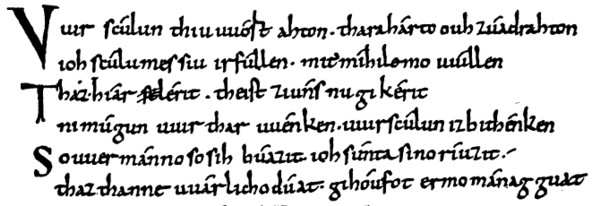 Vuir sculun thiu uuórt ahton . tharahárto ouh zuádrahton
ioh sculumes siu irfúllen . mit míhilemo uuíllen
Tház hiar lérit . theist ziúns nu gikérit
ni múgun uuir thar uuénken . uuir sculun iz bithénken
So uuer mánno so sih búazit . ioh súnta sino ríuzit .
thaz thanne uuárlicho dúat . gihóufot er mo mánag guat